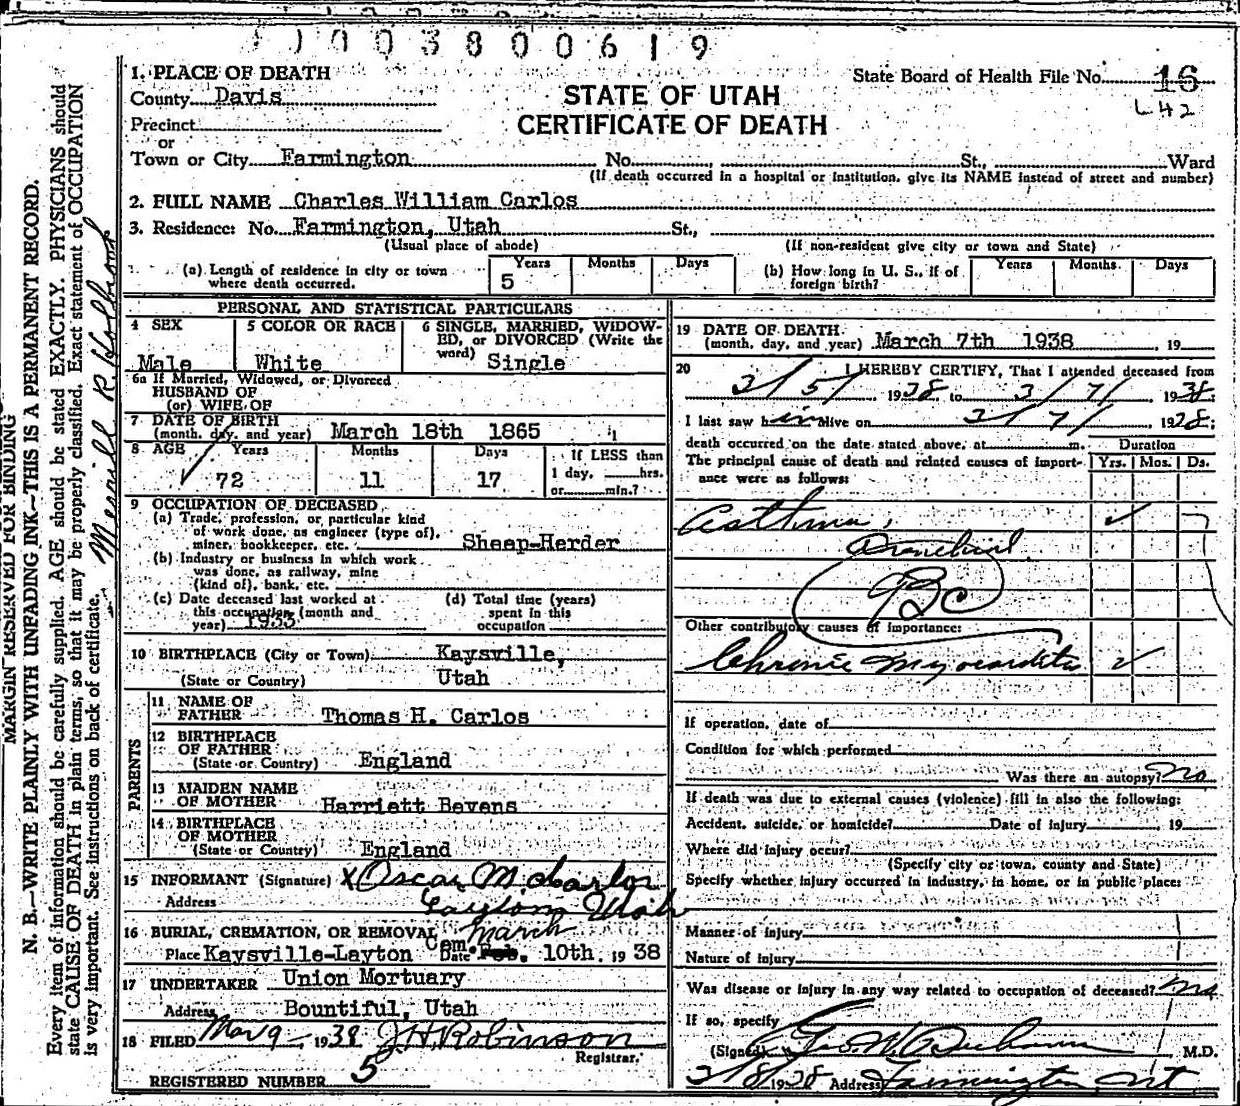 1003800619
1. PLACE OF DEATH
State Board of Health File No. 16
County Davis
L42
STATE OF UTAH
CERTIFICATE OF DEATH
Precinct
or
Town or City Farmington No. St., Ward
(If death occurred in a hospital or institution, give its NAME instead of street and number)
2. FULL NAME Charles William Carlos
3. Residence: No. Farmington, Utah St.,
(Usual place of abode) (If non-resident give city or town and State)
(a) Length of residence in city or town where death occurred. Years 5 Months Days
(b) How long in U. S., if of foreign birth? Years Months Days
PERSONAL AND STATISTICAL PARTICULARS
4 SEX Male
5 COLOR OR RACE White
6 SINGLE, MARRIED, WIDOWED, or DIVORCED (Write the word) Single
6a If Married, Widowed, or Divorced
HUSBAND OF
(or) WIFE OF
7 DATE OF BIRTH
(month, day, and year) March 18th 1865
8 AGE Years 72 Months 11 Days 17
If LESS than
1 day, hrs.
or min.?
9 OCCUPATION OF DECEASED
(a) Trade, profession, or particular kind
of work done, as engineer (type of),
miner, bookkeeper, etc. Sheep-Herder
(b) Industry or business in which work
was done, as railway, mine
(kind of), bank, etc.
(c) Date deceased last worked at
this occupation (month and
year) 1933
(d) Total time (years)
spent in this
occupation
10 BIRTHPLACE (City or Town) Kaysville,
(State or Country) Utah
PARENTS
11 NAME OF
FATHER Thomas H. Carlos
12 BIRTHPLACE
OF FATHER
(State or Country) England
13 MAIDEN NAME
OF MOTHER Harriett Bevens
14 BIRTHPLACE
OF MOTHER
(State or Country) England
15 INFORMANT (Signature) X Oscar M Carlos
Address Layton, Utah
16 BURIAL, CREMATION, OR REMOVAL March
Place Kaysville-Layton Cem Date Feb. 10th. 1938
17 UNDERTAKER Union Mortuary
Address Bountiful, Utah
18 FILED Mar 9 - 1938 J H Robinson
Registrar.
REGISTERED NUMBER 5
19 DATE OF DEATH
(month, day, and year) March 7th 1938, 19
20 I HEREBY CERTIFY, That I attended deceased from
3/5/ 1938 to 3/7/ 1938;
I last saw him alive on 3/7/, 1938;
death occurred on the date stated above, at m.
Duration
The principal cause of death and related causes of importance were as follows:
Yrs. Mos. Ds.
Asthma,
Bronchial
Other contributory causes of importance:
Chronic Myocarditis
If operation, date of
Condition for which performed
Was there an autopsy? no
If death was due to external causes (violence) fill in also the following:
Accident, suicide, or homicide? Date of injury 19
Where did injury occur?
(Specify city or town, county and State)
Specify whether injury occurred in industry, in home, or in public place:
Manner of injury
Nature of injury
Was disease or injury in any way related to occupation of deceased? no
If so, specify
(Signed) M.D.
3/8/1938 Address Farmington, Ut
MARGIN RESERVED FOR BINDING
N. B.—WRITE PLAINLY WITH UNFADING INK—THIS IS A PERMANENT RECORD.
Every item of information should be carefully supplied. AGE should be stated EXACTLY. PHYSICIANS should
state CAUSE OF DEATH in plain terms, so that it may be properly classified. Exact statement of OCCUPATION
is very important. See instructions on back of certificate.
Merrill R Holbrook